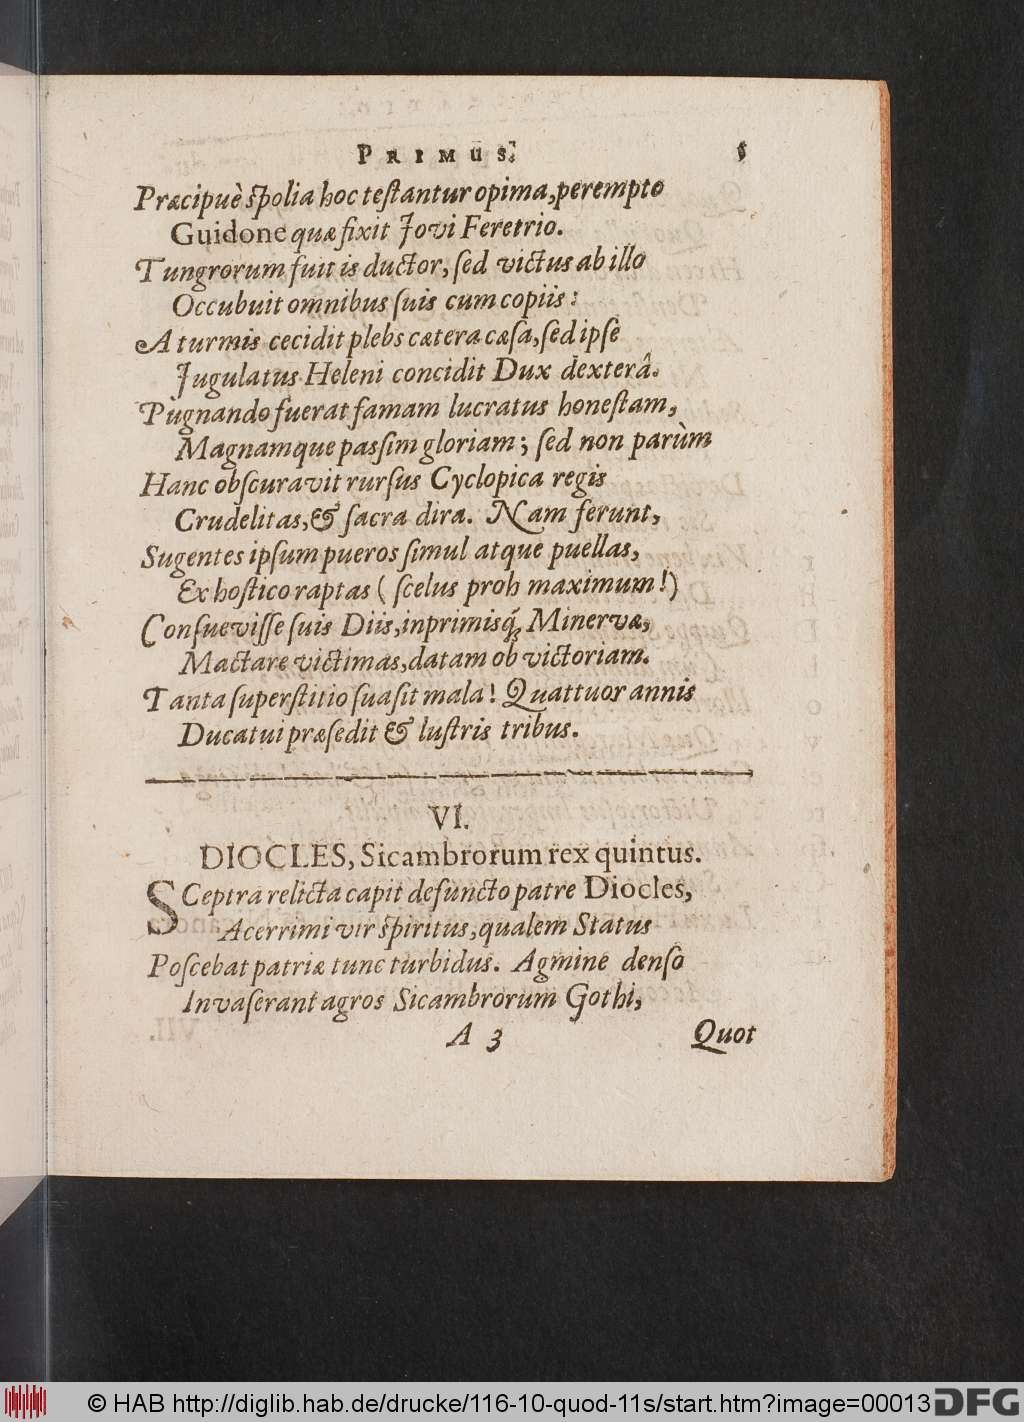 PRIMUS. 5
Præcipuè ſpolia hoc teſtantur opima, perempto
Guidone quæ fixit Jovi Feretrio.
Tungrorum fuit is ductor, ſed victus ab illo
Occubuit omnibus ſuis cum copiis:
A turmis cecidit plebs cætera cæſa, ſed ipſe
Jugulatus Heleni concidit Dux dexterâ.
Pugnando fuerat famam lucratus honeſtam,
Magnamque paſſim gloriam; ſed non parùm
Hanc obſcuravit rurſus Cyclopica regis
Crudelitas, & ſacra dira. Nam ferunt,
Sugentes ipſum pueros ſimul atque puellas,
Ex hoſtico raptas (ſcelus proh maximum!)
Conſueviſſe ſuis Diis, inprimisq́; Minervæ,
Mactare victimas, datam ob victoriam.
Tanta ſuperſtitio ſuaſit mala! Quattuor annis
Ducatui præſedit & luſtris tribus.
VI.
DIOCLES, Sicambrorum rex quintus.
SCeptra relicta capit defuncto patre Diocles,
Acerrimi vir ſpiritus, qualem Status
Poſcebat patriæ tunc turbidus. Agmine denſo
Invaſerant agros Sicambrorum Gothi,
A 3 Quot
© HAB http://diglib.hab.de/drucke/116-10-quod-11s/start.htm?image=00013 DFG